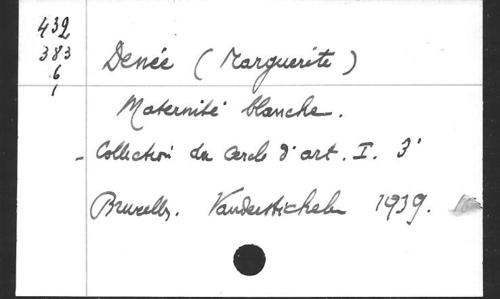 432
383
6
1
Denée (Marguerite)
Maternité blanche.
- Collection du Cercle d'art. I. 3'
Bruxelles. Vanderstichelen 1939.